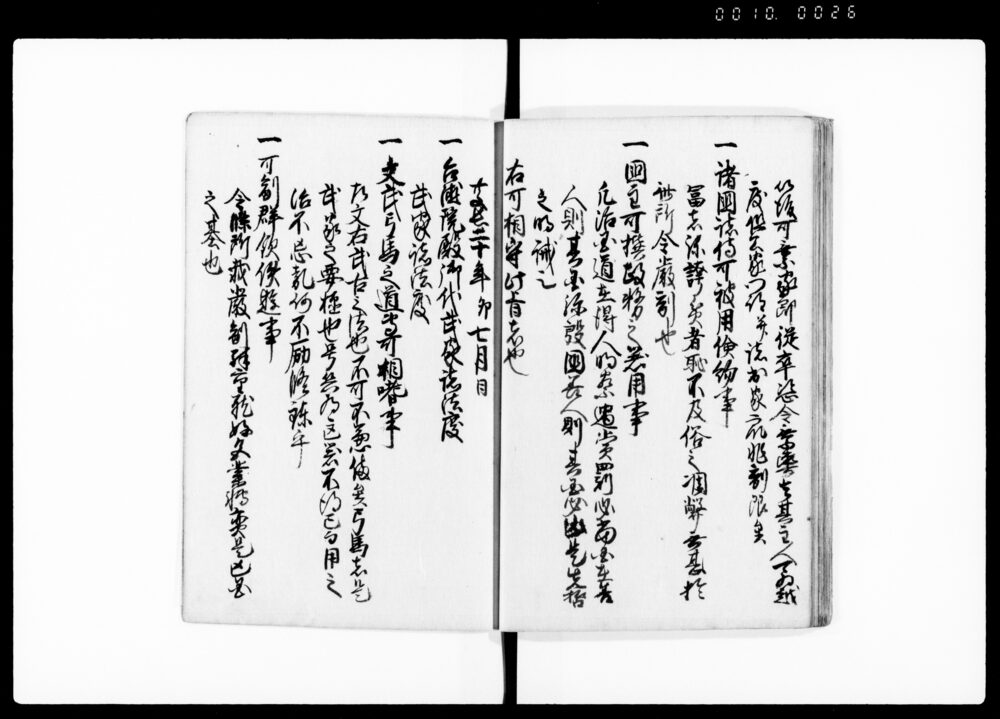 0010. 0026
以強可棄家郎従卒恣令乗輿者其主人可為越
度但公家門跡并諸出家之衆非制限矣
一 諸國諸侍可被用倹約事
富者弥誇貧者恥不及俗之凋弊無甚於
此所令厳制也
一 國主可撰政務之器用事
凡治国道在得人明察功過賞罰必当国在善
人則其国弥殷國無善人則其国必亡是先哲
之明誡也
右可相守此旨者也
慶長二十年 卯 七月日
一 台徳院殿御代武家諸法度
武家諸法度
一 文武弓馬之道専可相嗜事
左文右武古之法也不可不兼備矣弓馬者是
武家之要枢也号兵為凶器不得已而用之
治不忘乱何不励修錬乎
一 可制群飲佚遊事
令條所載厳制殊重耽好色業博奕是亡国
之基也